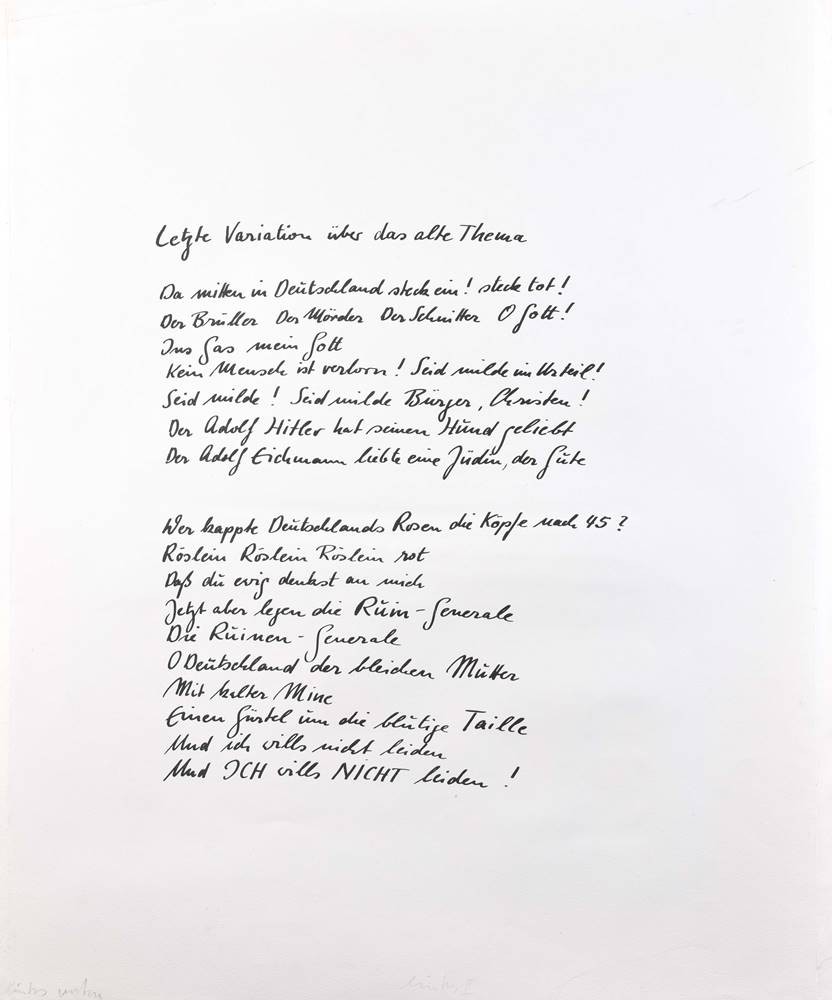 Letzte Variation über das alte Thema
Da mitten in Deutschland steck ein! steck tot!
Der Brüller Der Mörder Der Schnitter O Gott!
Ins Gas mein Gott
Kein Mensch ist verlorn! Seid milde im Urteil!
Seid milde! Seid milde Bürger, Christen!
Der Adolf Hitler hat seinen Hund geliebt
Der Adolf Eichmann liebte eine Jüdin, der Gute
Wer kappte Deutschlands Rosen die Köpfe nach 45?
Röslein Röslein Röslein rot
Daß du ewig denkst an mich
Jetzt aber legen die Ruin-Generale
Die Ruinen-Generale
O Deutschland der bleichen Mutter
Mit kalter Mine
Einen Gürtel um die blutige Taille
Und ich wills nicht leiden
Und ICH wills NICHT leiden!
links unten links II